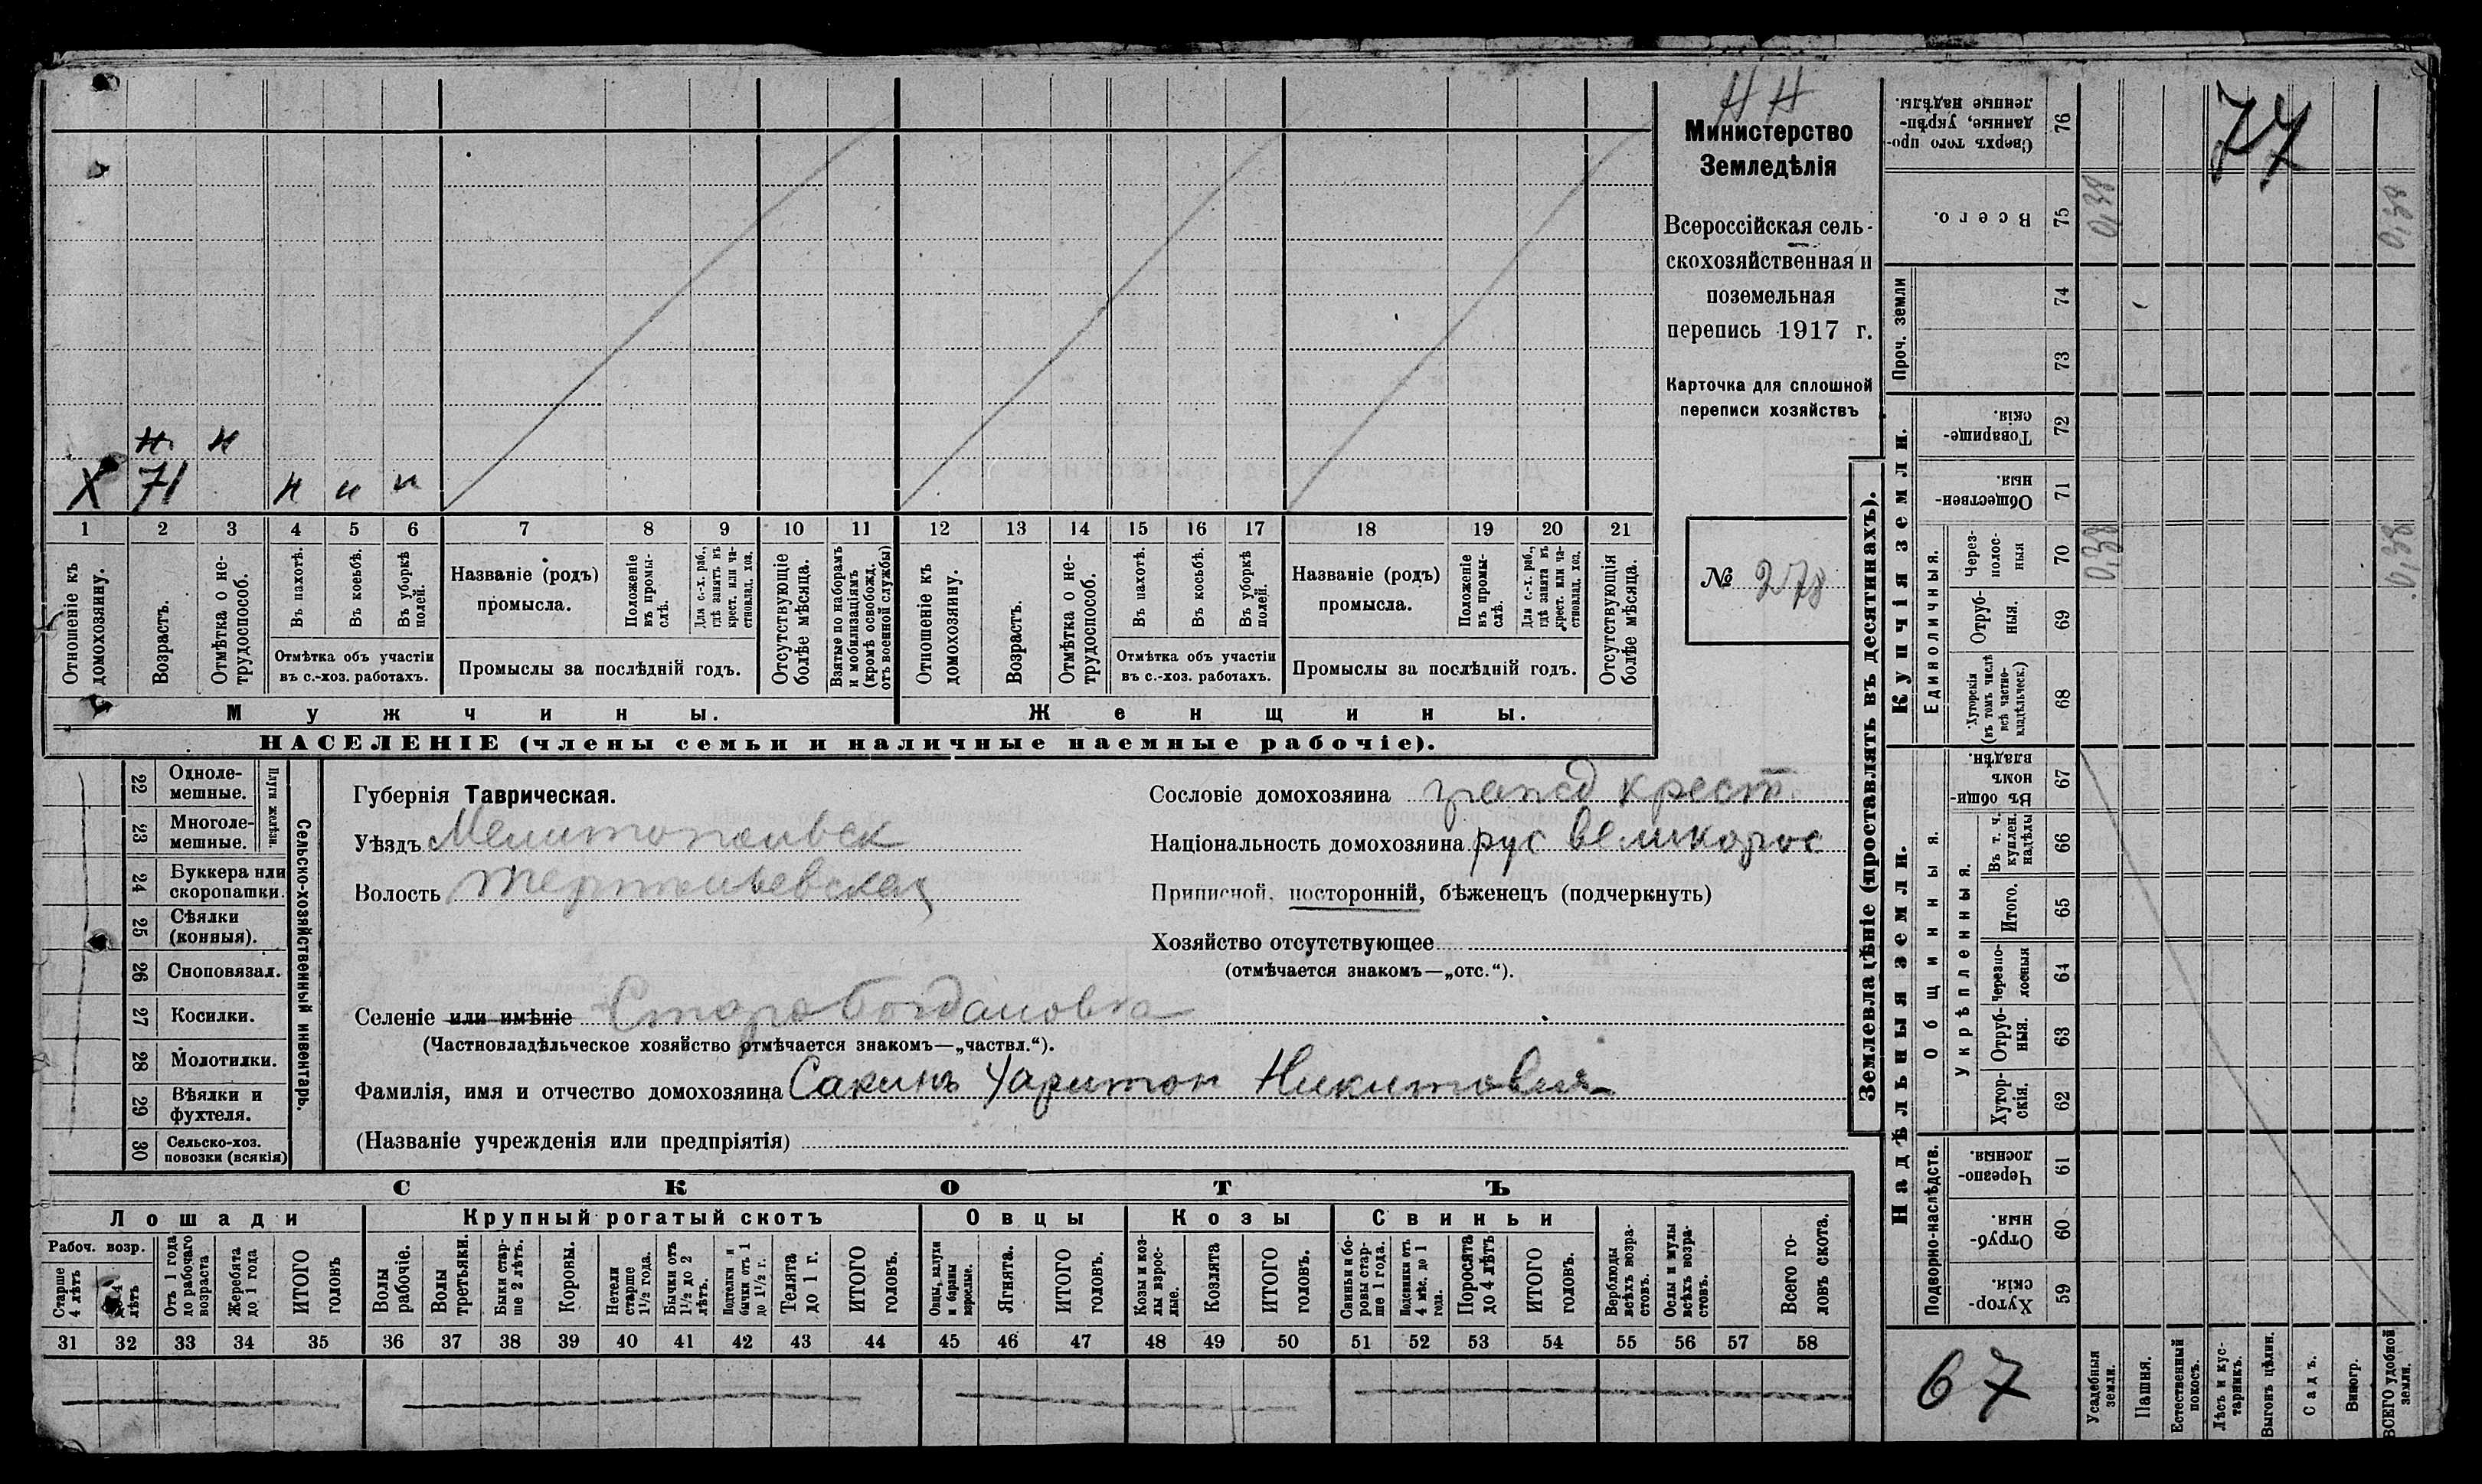 Н Н
Министерство
Земледѣлія
Всероссійская сель-
скохозяйственная и
поземельная
перепись 1917 г.
Карточка для сплошной
переписи хозяйствъ
№ 278
н н
Х 71 н н н
1 2 3 4 5 6 7 8 9 10 11 12 13 14 15 16 17 18 19 20 21
Отношеніе къ домохозяину.
Возрастъ.
Отмѣтка о не-трудоспособ.
Въ пахотѣ.
Въ косьбѣ.
Въ уборкѣ полей.
Отмѣтка объ участіи
въ с.-хоз. работахъ.
Названіе (родъ)
промысла.
Положеніе въ промы-слѣ.
Для с.-х. раб., гдѣ занятъ въ крест. или ча-стновлад. хоз.
Промыслы за послѣдній годъ.
Отсутствующіе болѣе мѣсяца.
Взятые по наборамъ и мобилизаціямъ (кромѣ освобожд. отъ военной службы)
Отношеніе къ домохозяину.
Возрастъ.
Отмѣтка о не-трудоспособ.
Въ пахотѣ.
Въ косьбѣ.
Въ уборкѣ полей.
Отмѣтка объ участіи
въ с.-хоз. работахъ.
Названіе (родъ)
промысла.
Положеніе въ промы-слѣ.
Для с.-х. раб., гдѣ занята въ крест. или ча-стновлад. хоз.
Промыслы за послѣдній годъ.
Отсутствующія болѣе мѣсяца.
Мужчины.
Женщины.
НАСЕЛЕНІЕ (члены семьи и наличные наемные рабочіе).
22 Одноле-мешные.
23 Многоле-мешные.
Плуги желѣзн.
24 Буккера или скоропашки.
25 Сѣялки (конныя).
26 Сноповязал.
27 Косилки.
28 Молотилки.
29 Вѣялки и фухтеля.
30 Сельско-хоз. повозки (всякія)
Сельско-хозяйственный инвентарь.
Губернія Таврическая.
Уѣздъ Мелитопольск
Волость Терпеньевская
Селеніе или имѣніе Старо Богдановка
(Частновладѣльческое хозяйство отмѣчается знакомъ—„частвл.“).
Фамилія, имя и отчество домохозяина Сакинъ Харитон Никитович
(Названіе учрежденія или предпріятія)
Сословіе домохозяина крест.
Національность домохозяина рус великорос
Приписной, посторонній, бѣженецъ (подчеркнуть)
Хозяйство отсутствующее
(отмѣчается знакомъ—„отс.“).
СКОТЪ
Лошади
Крупный рогатый скотъ
Овцы
Козы
Свиньи
Рабоч. возр.
Старше 4 лѣтъ
До 4 лѣтъ
Отъ 1 года до рабочаго возраста
Жеребята до 1 года
ИТОГО головъ
Волы рабочіе.
Волы третьяки.
Быки стар-ше 2 лѣтъ.
Коровы.
Нетели старше 1½ года.
Бычки отъ 1½ до 2 лѣтъ.
Подтелки и бычки отъ 1 до 1½ г.
Телята до 1 г.
ИТОГО головъ.
Овцы, валухи и бараны взрослые.
Ягнята.
ИТОГО головъ.
Козы и коз-лы взрос-лые.
Козлята
ИТОГО головъ.
Свиньи и бо-ровы стар-ше 1 года.
Подсвинки отъ 4 мѣс. до 1 года.
Поросята до 4 лѣтъ
ИТОГО головъ.
Верблюды всѣхъ возра-стовъ.
Ослы и мулы всѣхъ возра-стовъ.
Всего го-ловъ скота.
31 32 33 34 35 36 37 38 39 40 41 42 43 44 45 46 47 48 49 50 51 52 53 54 55 56 57 58
Землевладѣніе (проставлять въ десятинахъ).
77
Сверхъ того про-данные, укрѣп-ленные надѣлы. 76
Всего. 75 0,38 0,38
Проч. земли 74
73
Купчія земли.
Товарище-скія. 72
Обществен-ныя. 71
Единоличныя.
Через-полос-ныя 70 0,38 0,38
Отруб-ныя. 69
Хуторскія (въ томъ числѣ всѣ частно-владѣльческ.) 68
Надѣльныя земли.
Общинныя.
Въ общи-номъ владѣн. 67
Укрѣпленныя.
Въ т. ч. куплен. надѣлы 66
Итого. 65
Черезпо-лосныя 64
Отруб-ныя. 63
Хутор-скія. 62
Подворно-наслѣдств.
Черезпо-лосныя. 61
Отруб-ныя. 60
Хутор-скія. 59
67
Усадебныя земли.
Пашня.
Естественный покосъ.
Лѣсъ и кус-тарникъ.
Выгонъ цѣлин.
Садъ.
Виногр.
ВСЕГО удобной земли.